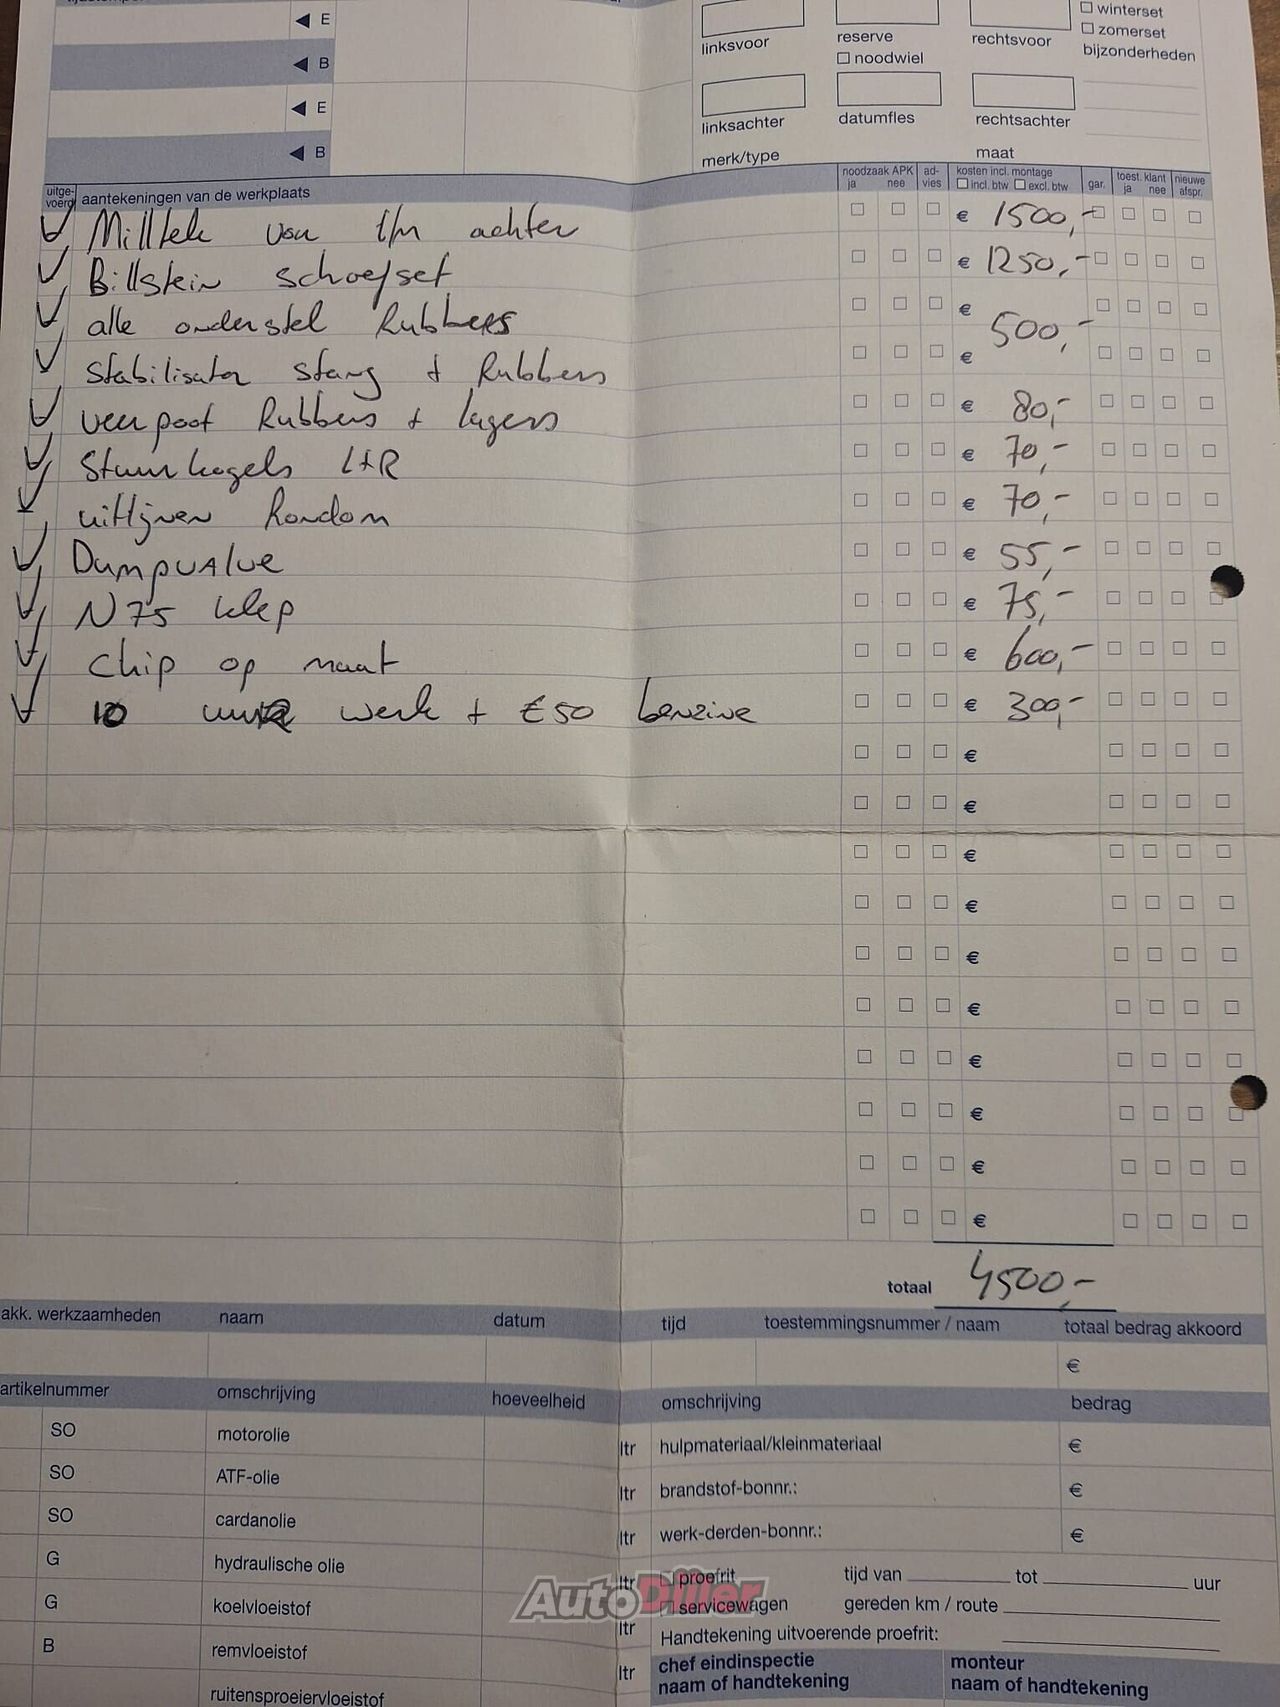 E
B
E
B
linksvoor
reserve
noodwiel
rechtsvoor
winterset
zomerset
bijzonderheden
linksachter
datumfles
rechtsachter
merk/type
maat
uitge-
voerd
aantekeningen van de werkplaats
noodzaak APK
ja nee
ad-
vies
kosten incl. montage
incl. btw excl. btw
gar.
toest. klant
ja nee
nieuwe
afspr.
Milltek van t/m achter € 1500,-
Billstein schoefset € 1250,-
alle onderstel Rubbers €
500,-
Stabilisator stang + Rubbers €
veerpoot Rubbers + lagers € 80,-
Stuurkogels L+R € 70,-
uitlijnen Rondom € 70,-
Dumpvalve € 55,-
N75 klep € 75,-
Chip op maat € 600,-
10 uur werk + €50 benzine € 300,-
€
€
€
€
€
€
€
€
€
€
totaal 4500,-
akk. werkzaamheden naam datum tijd toestemmingsnummer / naam totaal bedrag akkoord
€
artikelnummer omschrijving hoeveelheid omschrijving bedrag
SO motorolie ltr hulpmateriaal/kleinmateriaal €
SO ATF-olie ltr brandstof-bonnr.: €
SO cardanolie ltr werk-derden-bonnr.: €
G hydraulische olie ltr proefrit tijd van tot uur
G koelvloeistof ltr servicewagen gereden km / route
B remvloeistof ltr Handtekening uitvoerende proefrit:
ruitensproeiervloeistof
chef eindinspectie
naam of handtekening
monteur
naam of handtekening
AutoDiler